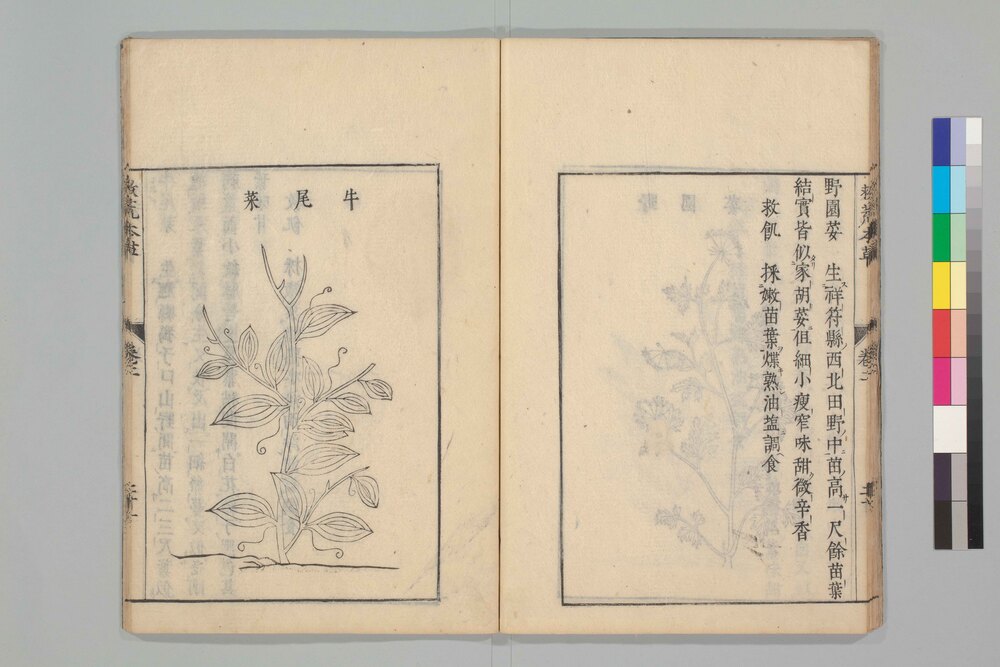 野園荽 生祥符縣西北田野中苗高一尺餘苗葉
結實皆似家胡荽但細小瘦窄味甜微辛香
救飢 採嫩苗葉煠熟油塩調食
牛尾菜